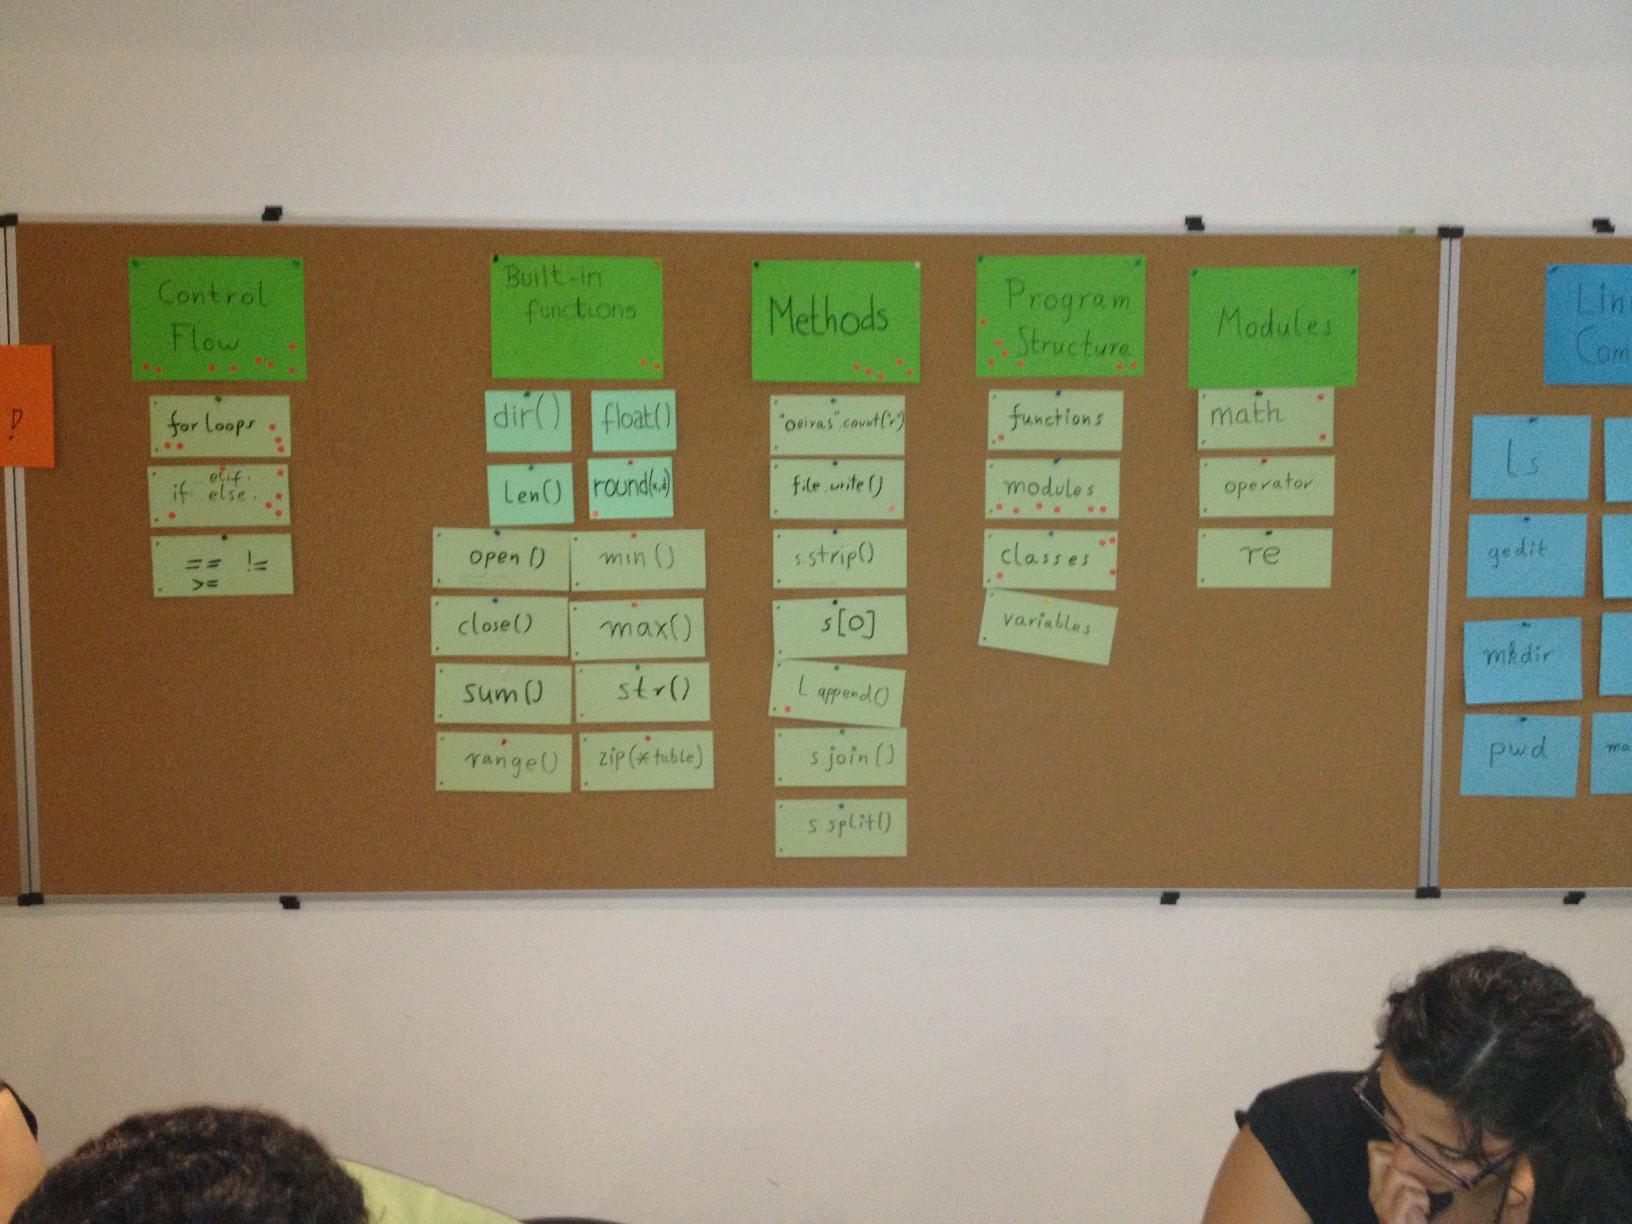 !
Control
Flow
for loops
elif
if else
== !=
>=
Built-in
functions
dir()
float()
len()
round(x,d)
open()
min()
close()
max()
sum()
str()
range()
zip(*table)
Methods
"oeiras".count("r")
file.write()
s.strip()
s[0]
L.append()
s.join()
s.split()
Program
Structure
functions
modules
classes
variables
Modules
math
operator
re
Lin
Com
ls
gedit
mkdir
pwd
ma